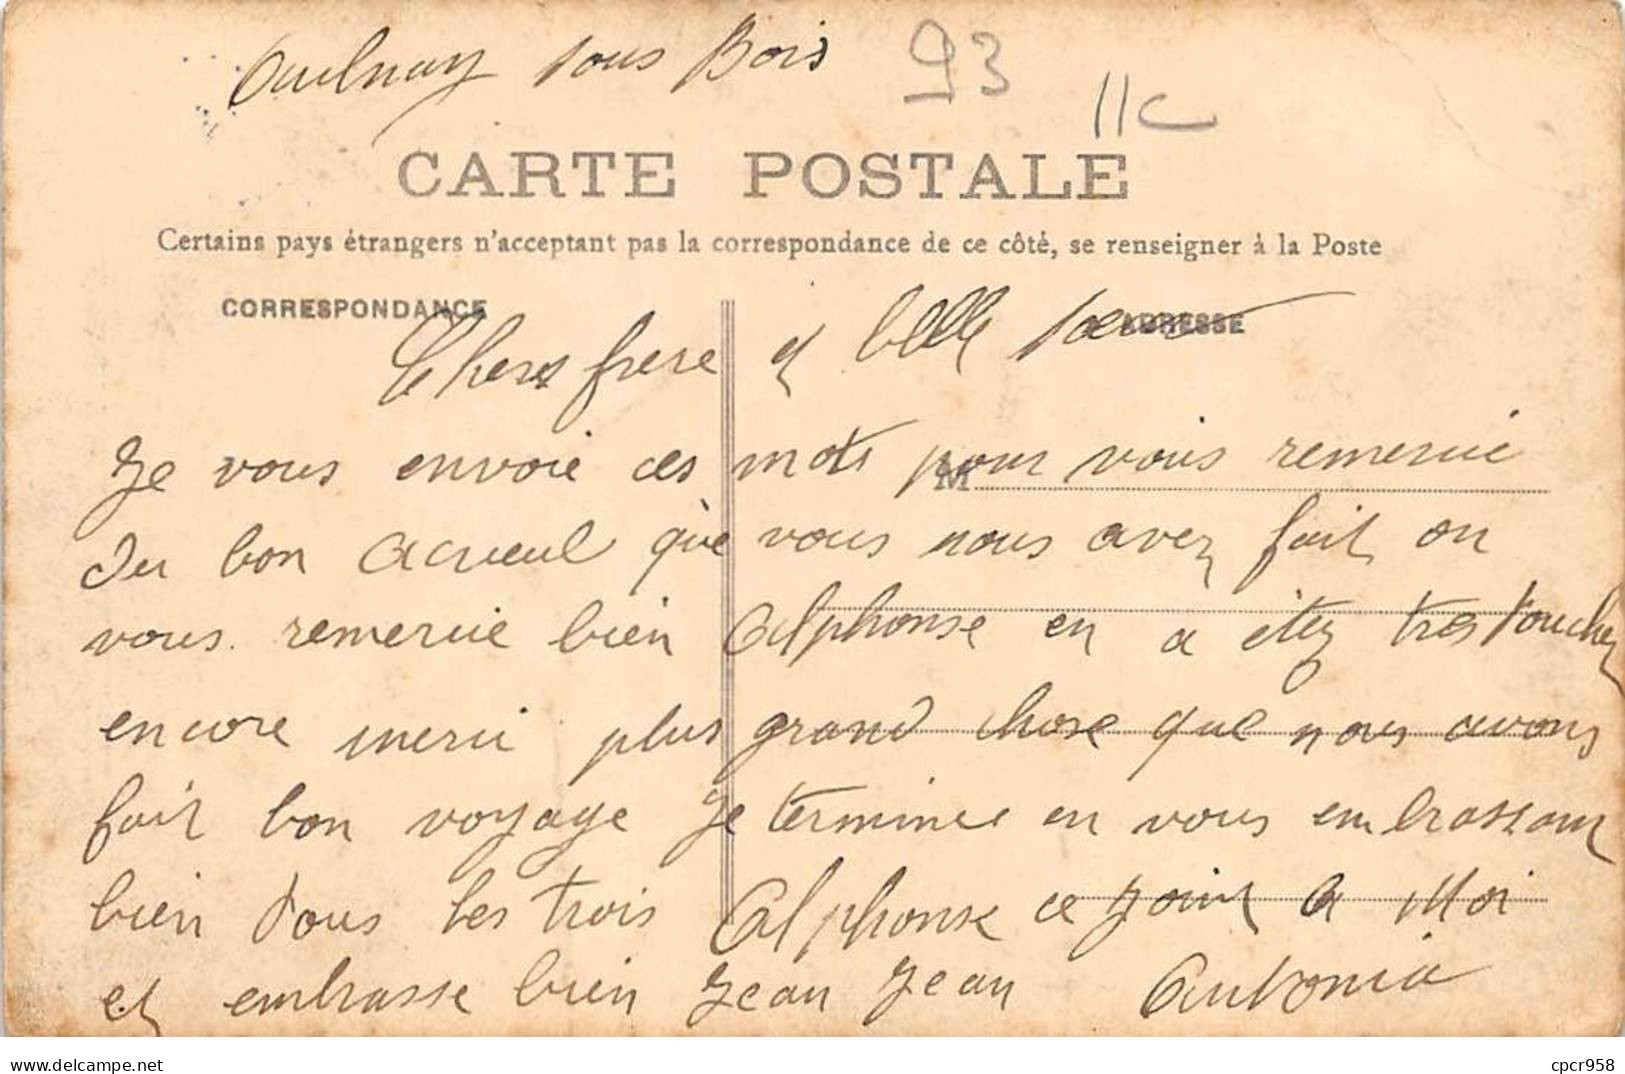 Aulnay sous Bois 93 11c
CARTE POSTALE
Certains pays étrangers n'acceptant pas la correspondance de ce côté, se renseigner à la Poste
CORRESPONDANCE
ADRESSE
Chers frere et belle soeur
Je vous envoie ces mots pour vous remercie
M
du bon acrueul que vous nous avez fait on
vous remercie bien Alphonse en a étez tres touchez
encore merci plus grand chose que nous avons
fait bon voyage Je termine en vous embrassant
bien tous les trois Alphonse ce joint a Moi
et embrasse bien Jean Jean Antonia
delcampe.net
cpcr958